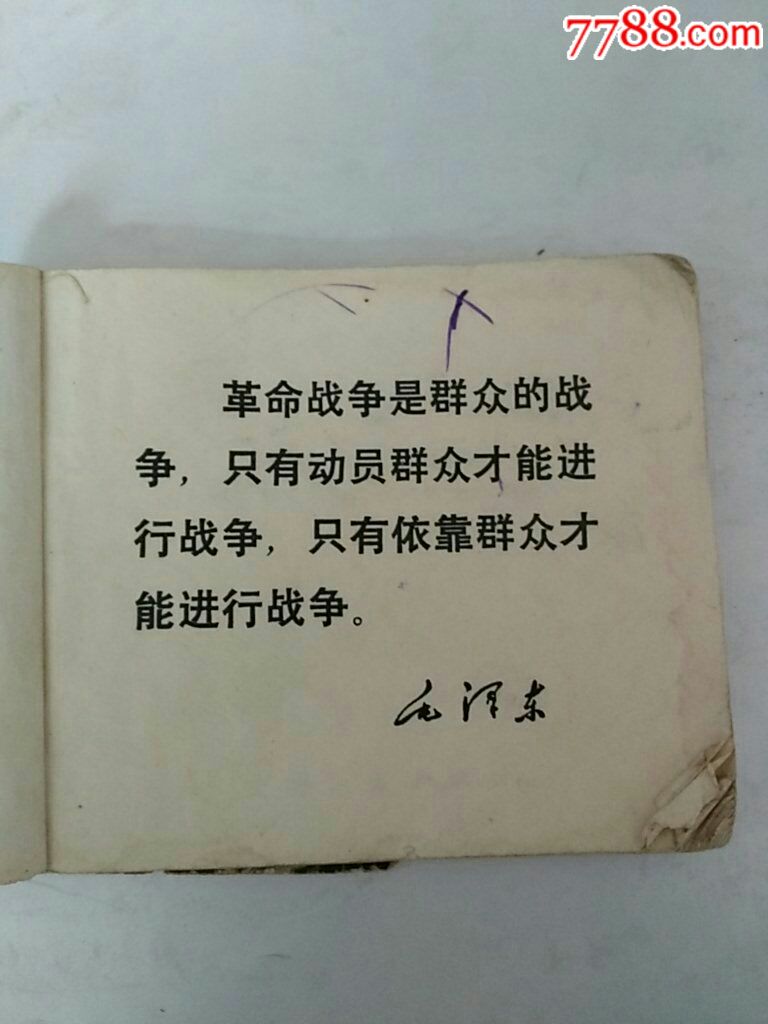 7788.com
革命战争是群众的战
争，只有动员群众才能进
行战争，只有依靠群众才
能进行战争。
毛泽东